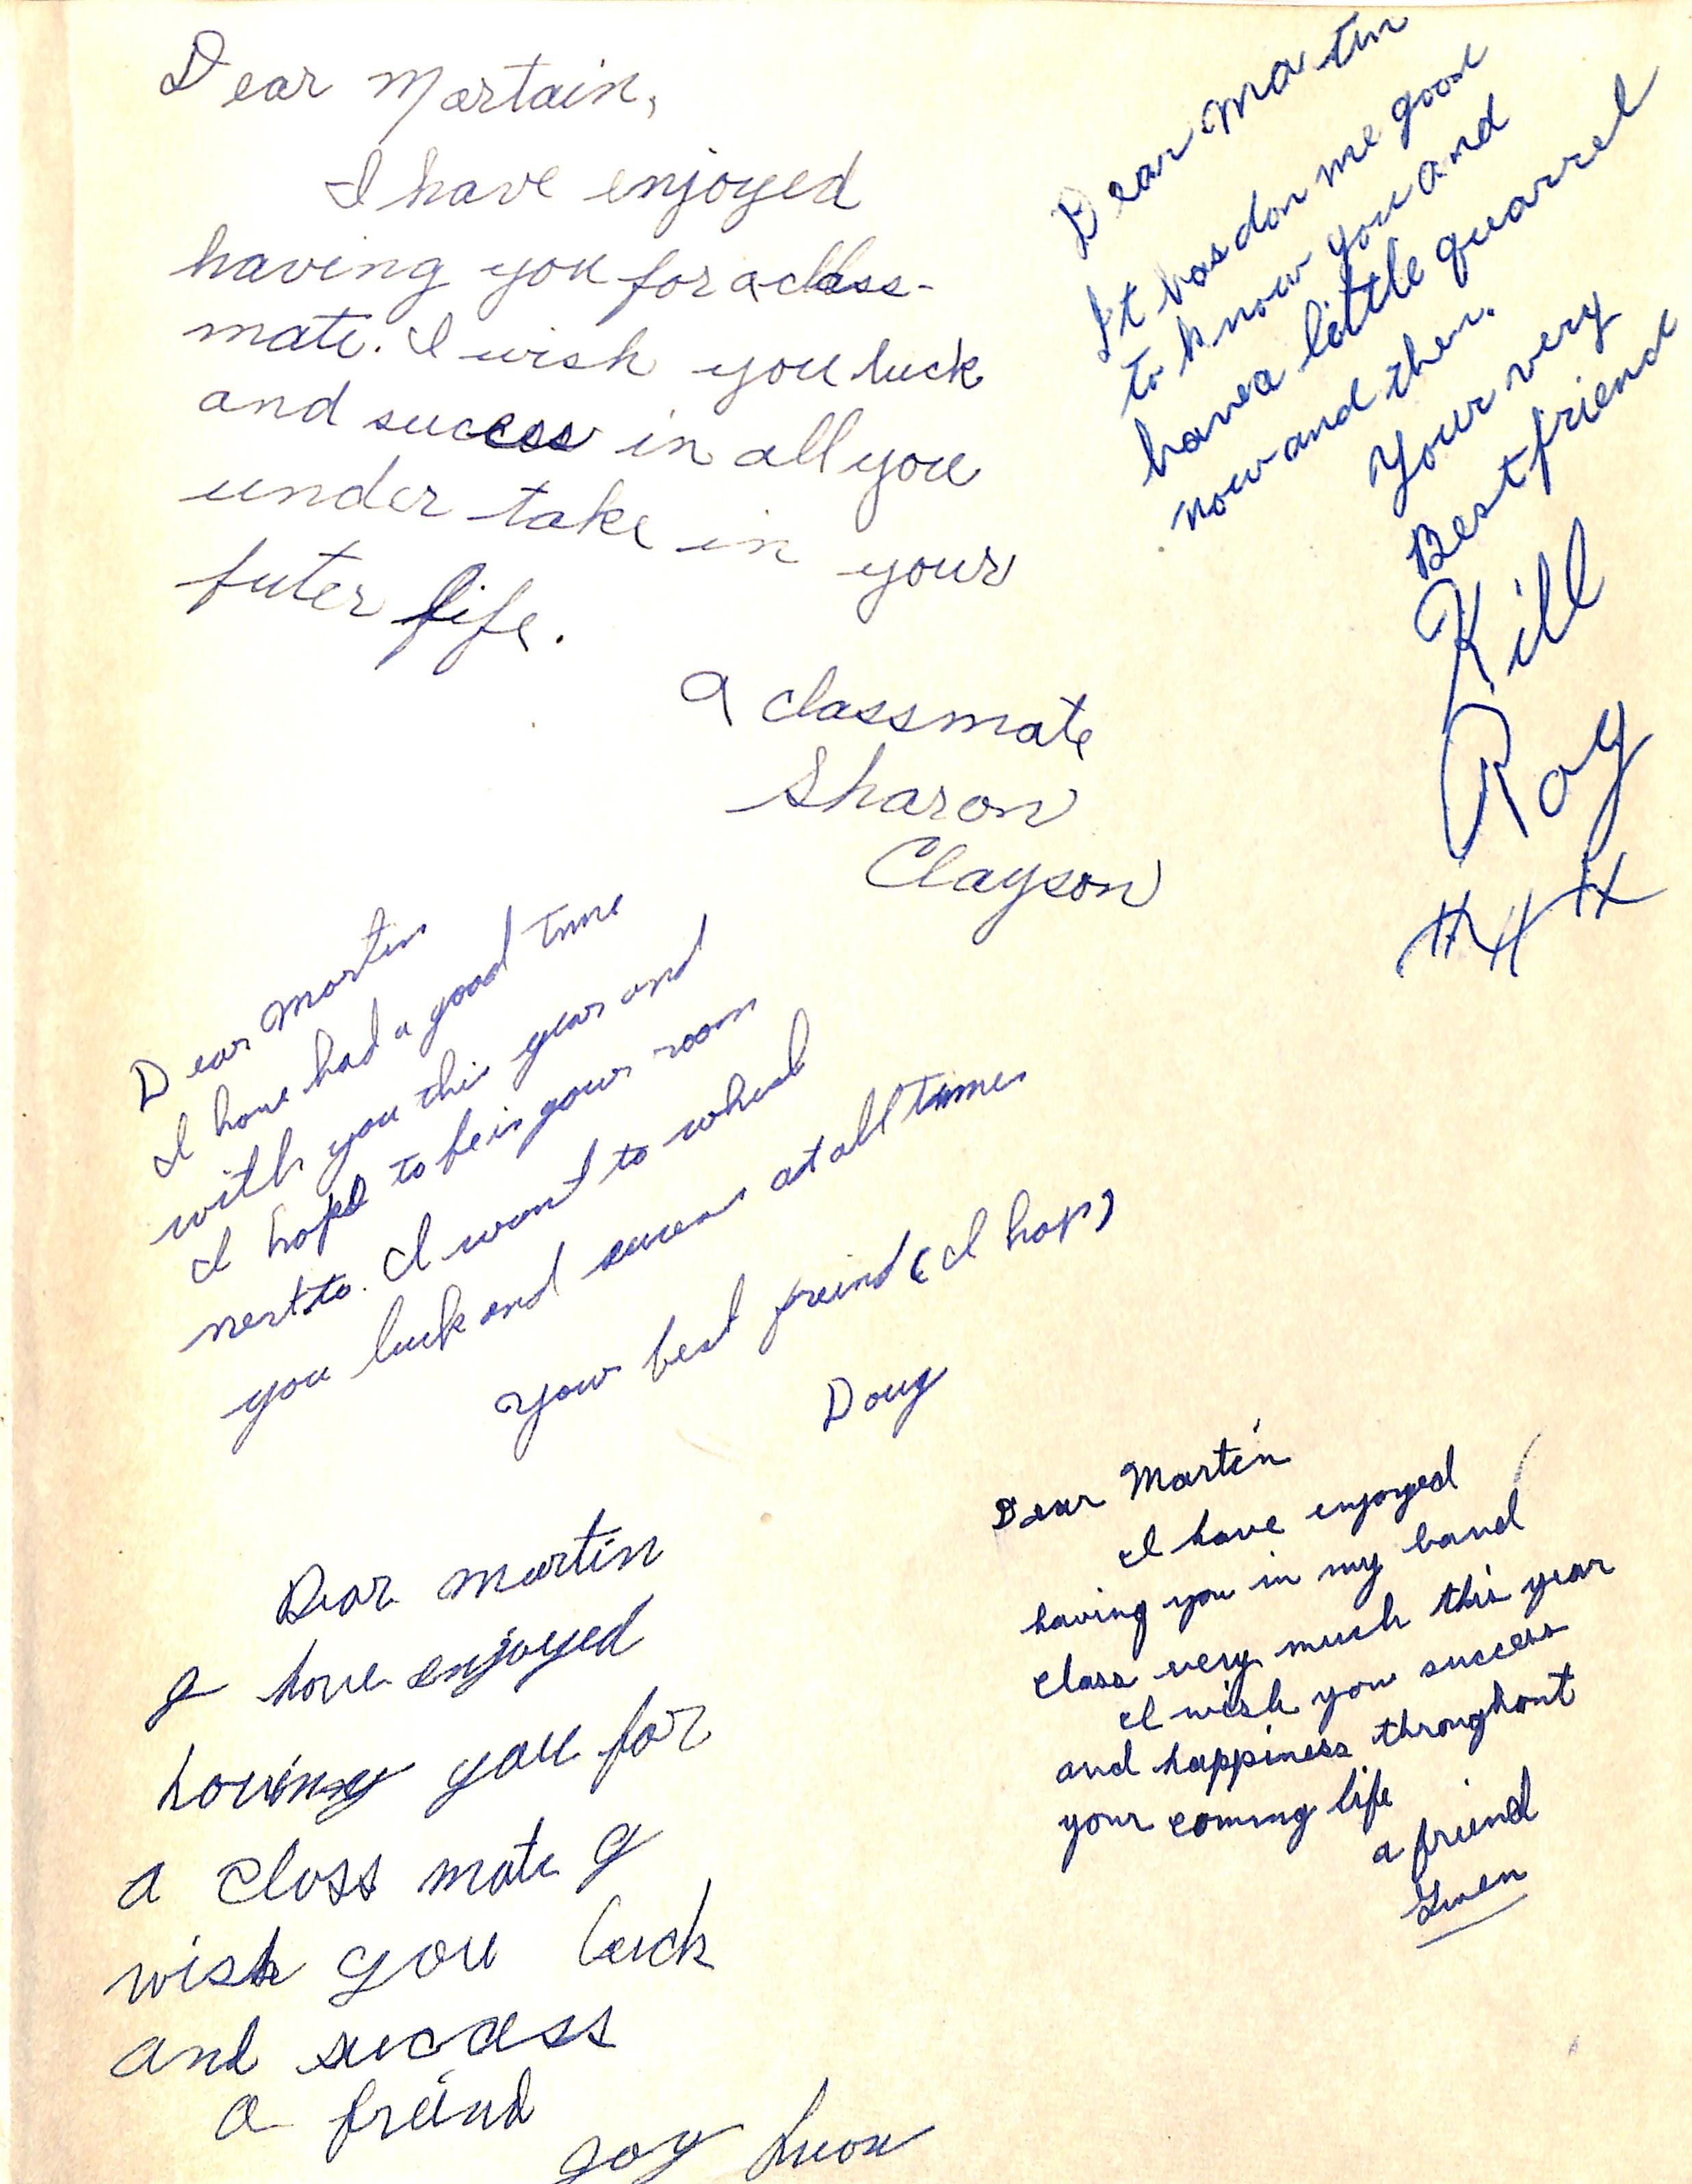 Dear Martain,
I have enjoyed
having you for a class-
mate. I wish you luck
and success in all you
under take in your
futer life.
A classmate
Sharon
Clayson
Dear Martin
It has don me good
to know you and
have a little quarrel
now and then.
Your very
Best friend
Kill
Roy
Dear Martin
I have had a good time
with you this year and
I hope to be in your room
next to. I want to
you luck and success at all times
your best freind (I hop)
Doug
Dear Martin
I have enjoyed
having you in my band
class very much this year
I wish you success
and happiness throughout
your coming life
a friend
Gwen
Dear Martin
I have enjoyed
having you for
a class mate I
wish you luck
and success
a freind
Joy